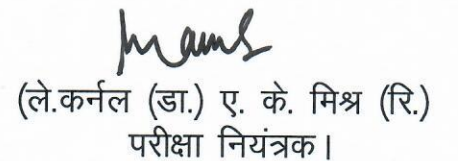 (ले.कर्नल (डा.) ए. के. मिश्र (रि.)
परीक्षा नियंत्रक।